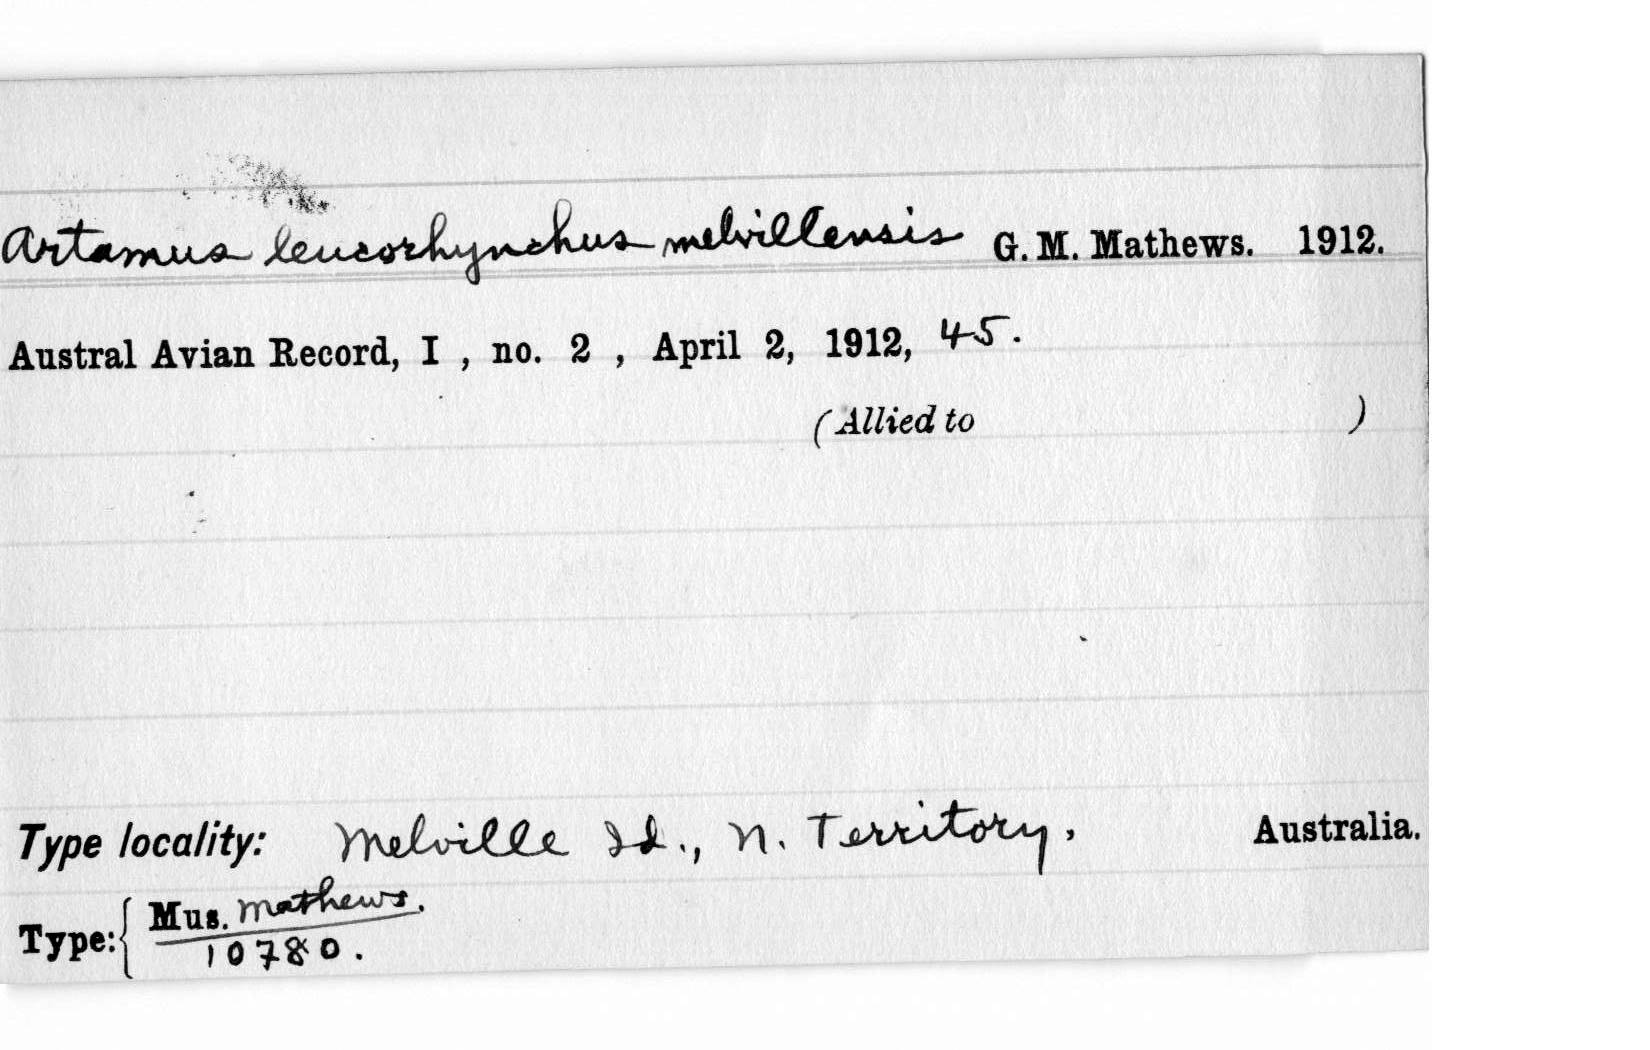 Artamus leucorhynchus melvillensis G. M. Mathews. 1912.
Austral Avian Record, I , no. 2 , April 2, 1912, 45.
(Allied to )
Type locality: Melville Id., N. Territory, Australia.
Type: { Mus. Mathews.
10780.